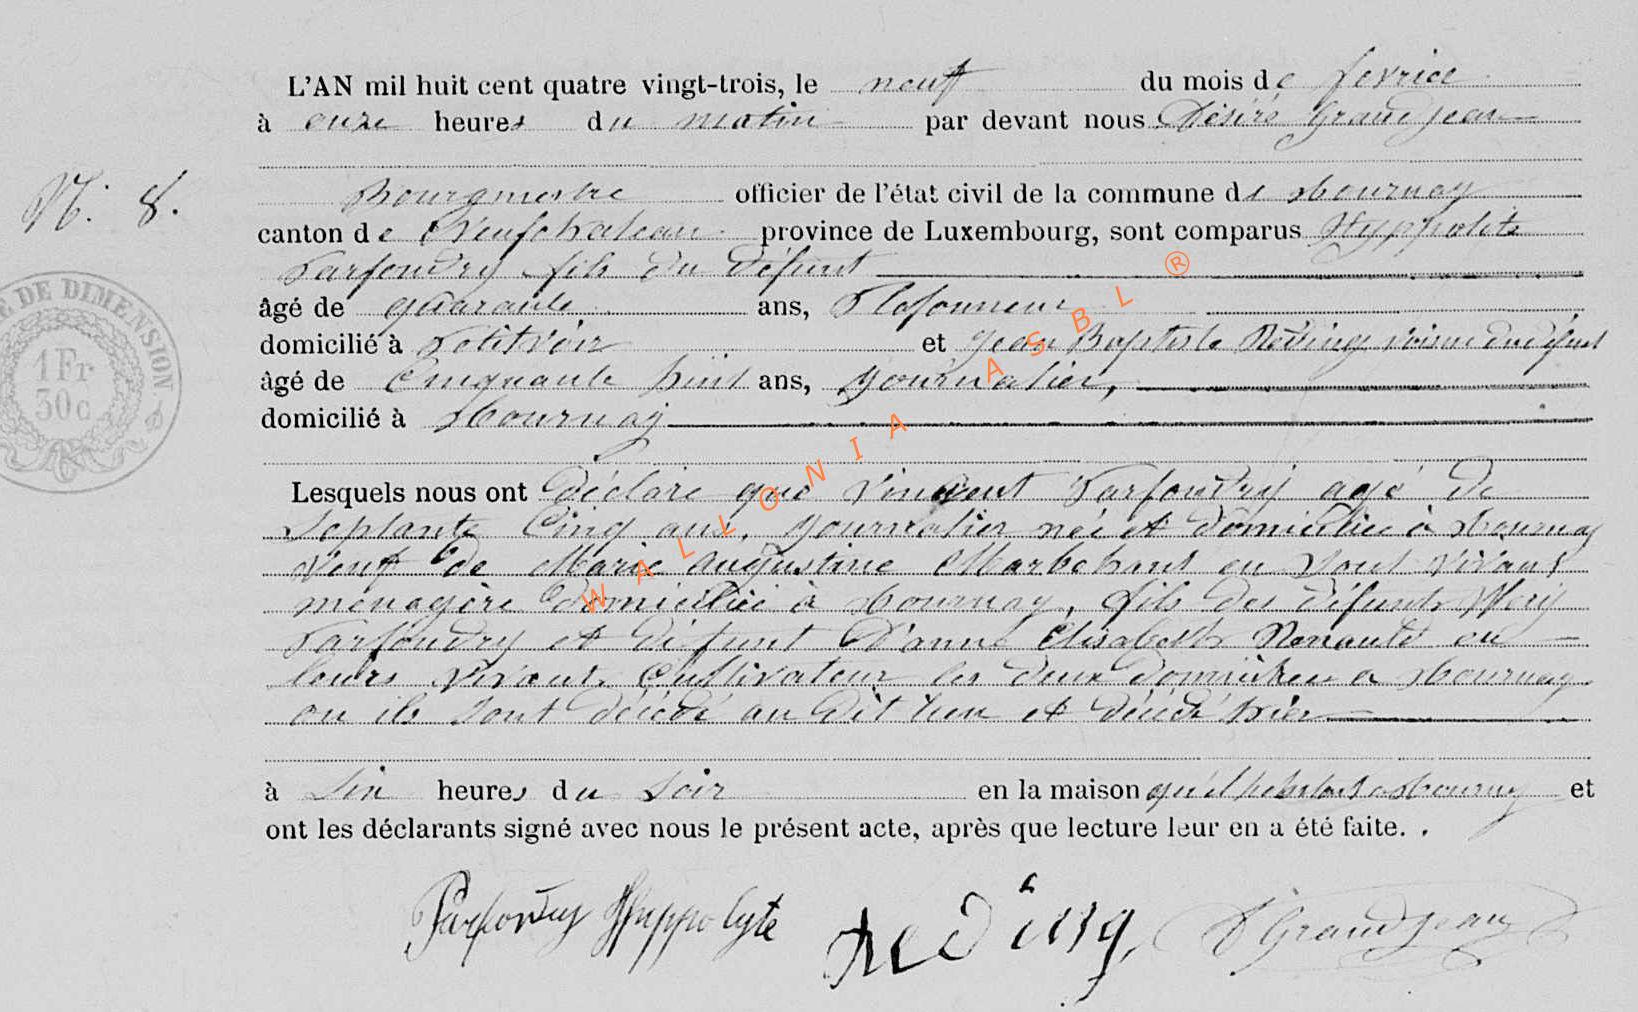 L'AN mil huit cent quatre vingt-trois, le neuf du mois de fevrier
à onze heures du matin par devant nous Désiré Grandjean
N. 8.
Bourgmestre officier de l'état civil de la commune de Tournay
canton de Neufchateau province de Luxembourg, sont comparus Hyppolite
Parfondry fils du défunt
âgé de quarante ans, Plafonneur
domicilié à Petitvoir et Jean Baptiste Réding voisin du défunt
âgé de Cinquante huit ans, Journalier,
domicilié à Tournay
TIMBRE DE DIMENSION
1 Fr
30 c
Lesquels nous ont déclaré que Vincent Parfondry agé de
Septante Cinq ans, Journalier née et domiciliée à Tournay
Veuf de Marie Augustine Marbehant en Sont vivant
ménagère domiciliée à Tournay, fils des défunts
Parfondry et défunt D'anne Elisabeth Renauld en
leurs vivant Cultivateur les deux domiciliée a Tournay
ou ils sont décédé au dit lieu et décédé hier
à Six heures du Soir en la maison qu'il habitait a Tournay et
ont les déclarants signé avec nous le présent acte, après que lecture leur en a été faite. .
Parfondry Hyppolyte Reding, D Grandjean
WALLONIA ASBL ®